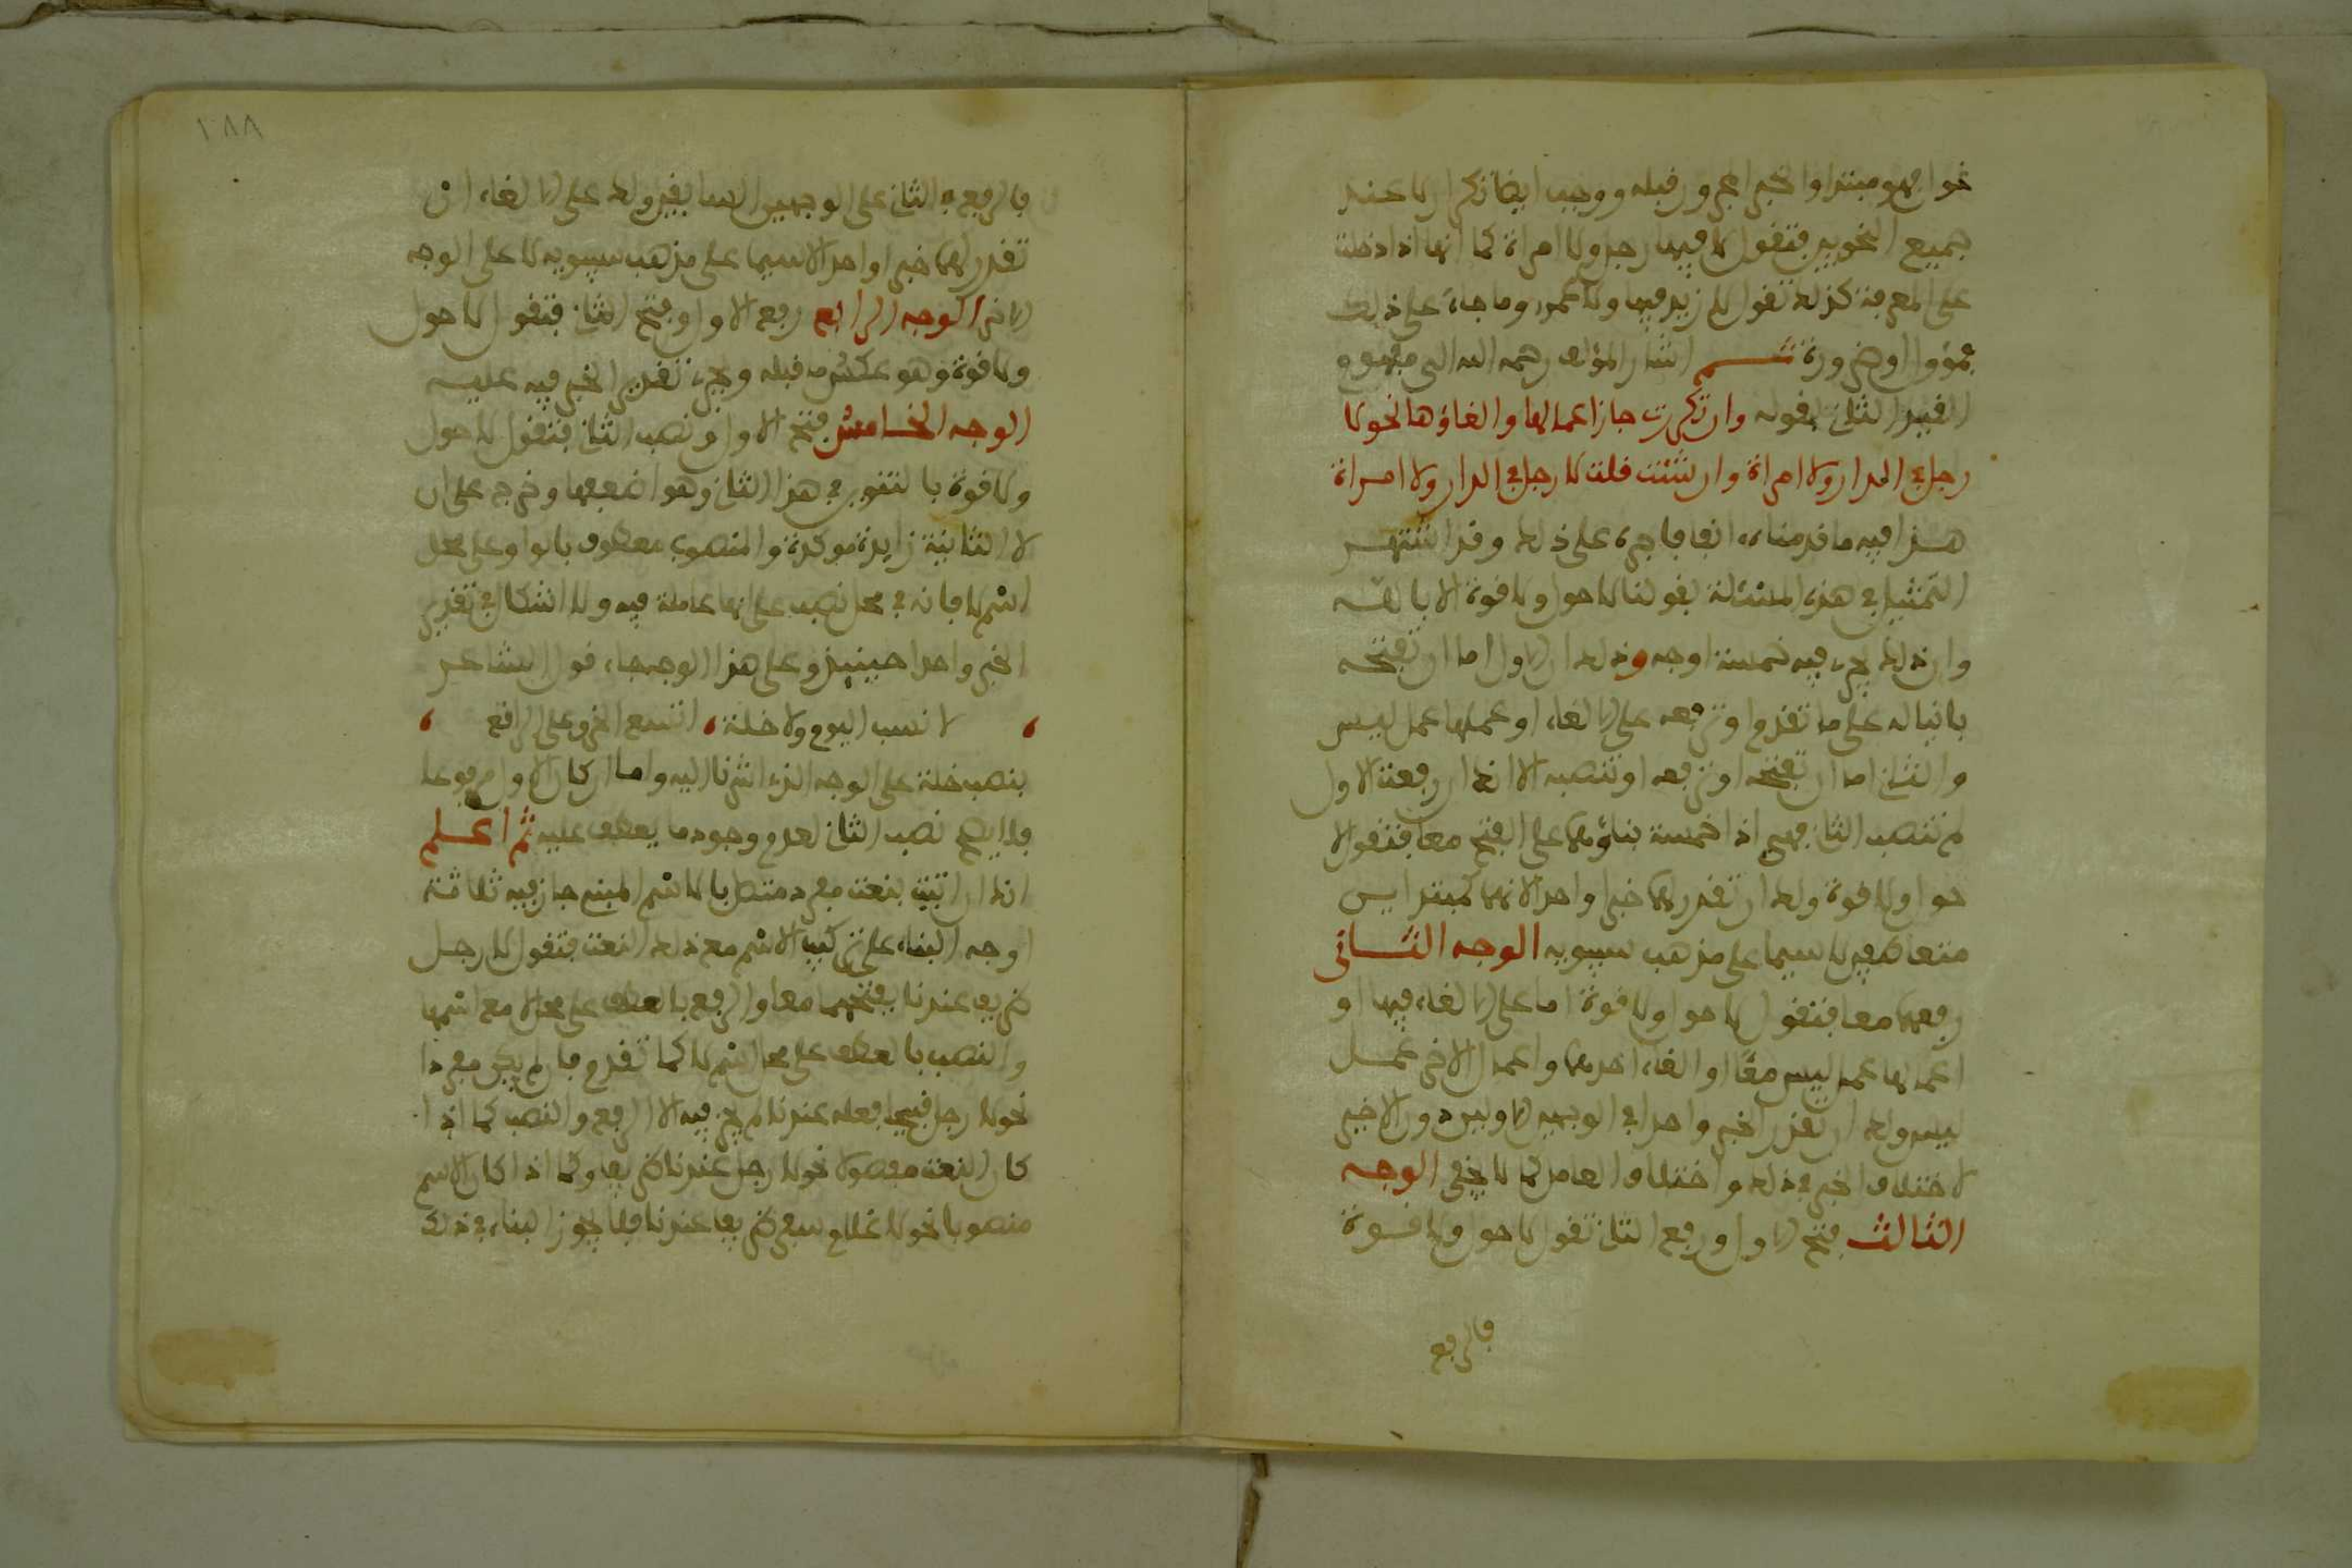 غول فهو مبتدا والخبر المجرور قبله ووجب ايضا تكرارلا عند
جميع النحويين فتقول لا فيها رجل ولا امراة كما انها اذا دخلت
على المعرفة كذلك تقول لا زيد فيها ولا عمرو وما جاء على ذلك
فمؤول او ضرورة ثم اشار المؤلف رحمه الله الى مفهوم
القيد الثاني بقوله وان تكررت جاز اعمالها والغاؤها نحو لا
رجل في الدار ولا امراة وان شئت قلت لا رجل في الدار ولا امراة
هذا فيه ما قدمناه انفا فاجره على ذلك وقد اشتهر
التمثيل في هذه المسئلة بقولنا لا حول ولا قوة الا بالله
وان ذلك يجري فيه خمسة اوجه وذلك ان الاول اما ان تفتحه
بانيا له على ما تقدم او ترفعه على الالغاء او عملها عمل ليس
والثاني اما ان تفتحه او ترفعه او تنصبه الا انك ان رفعت الاول
لم تنصب الثاني فهي اذا خمسة بناؤهما على الفتح معا فتقول لا
حول ولا قوة ولك ان تقدر لهما خبرا واحدا لانهما كمبتدايـن
متعاطفين لا سيما على مذهب سيبويه الوجه الثاني
رفعهما معا فتقول لا حول ولا قوة اما على الالغاء فيهما او
اعمالها عمل ليس معًا او الغاء احدهما واعمال الاخر عمل
ليس ولك ان تقدر الخبر واحدا في الوجهين الاولين دون الاخير
لاختلاف الخبر في ذلك واختلاف العامل كما لا يخفى الوجه
الثالث فتح الاول ورفع الثاني تقول لا حول ولا قوة
فالرفع
١٨٨
فالرفع في الثاني على الوجهين السابقين ولك على الالغاء ان
تقدر لهما خبرا واحدا لاسيما على مذهب سيبويه لا على الوجه
الاخر الوجه الرابع رفع الاول وفتح الثاني فتقول لا حول
ولا قوة وهو عكس ما قبله ويجري تقدير الخبر فيه عليه
الوجه الخامس فتح الاول ونصب الثاني فتقول لا حول
ولا قوة بالتنوين في هذا الثاني وهو اضعفها وخرج على ان
لا الثانية زايدة موكدة والمنصوب معطوف بالواو على محل
اسم لا فانه في محل نصب على انها عاملة فيه ولا اشكال في تقدير
الخبر واحدا حينيذ وعلى هذا الوجه جاء قول الشاعر
، لا نسب اليوم ولا خلة ، اتسع الخرق على الراقع ،
بنصب خلة على الوجه الذي اشرنا اليه واما ان كان الاول مرفوعا
فلا يصح نصب الثاني لعدم وجود ما يعطف عليه ثم اعلم
انك ان اتيت بنعت مفرد متصل بالاسم المبني جاز فيه ثلاثة
اوجه البناء على تركيب الاسم مع ذلك النعت فتقول لا رجل
ظريف عندنا بفتحهما معا والرفع بالعطف على محل لا مع اسمها
والنصب بالعطف على محل اسم لا كما تقدم فان لم يكن مفردا
نحو لا رجل قبيحا فعله عندنا لم يجز فيه الا الرفع والنصب كما اذا
كان النعت مفصولا نحو لا رجل عندنا ظريف وكما اذا كان الاسم
منصوبا نحو لا غلام سفر ظريف عندنا فلا يجوز البناء في ذلك